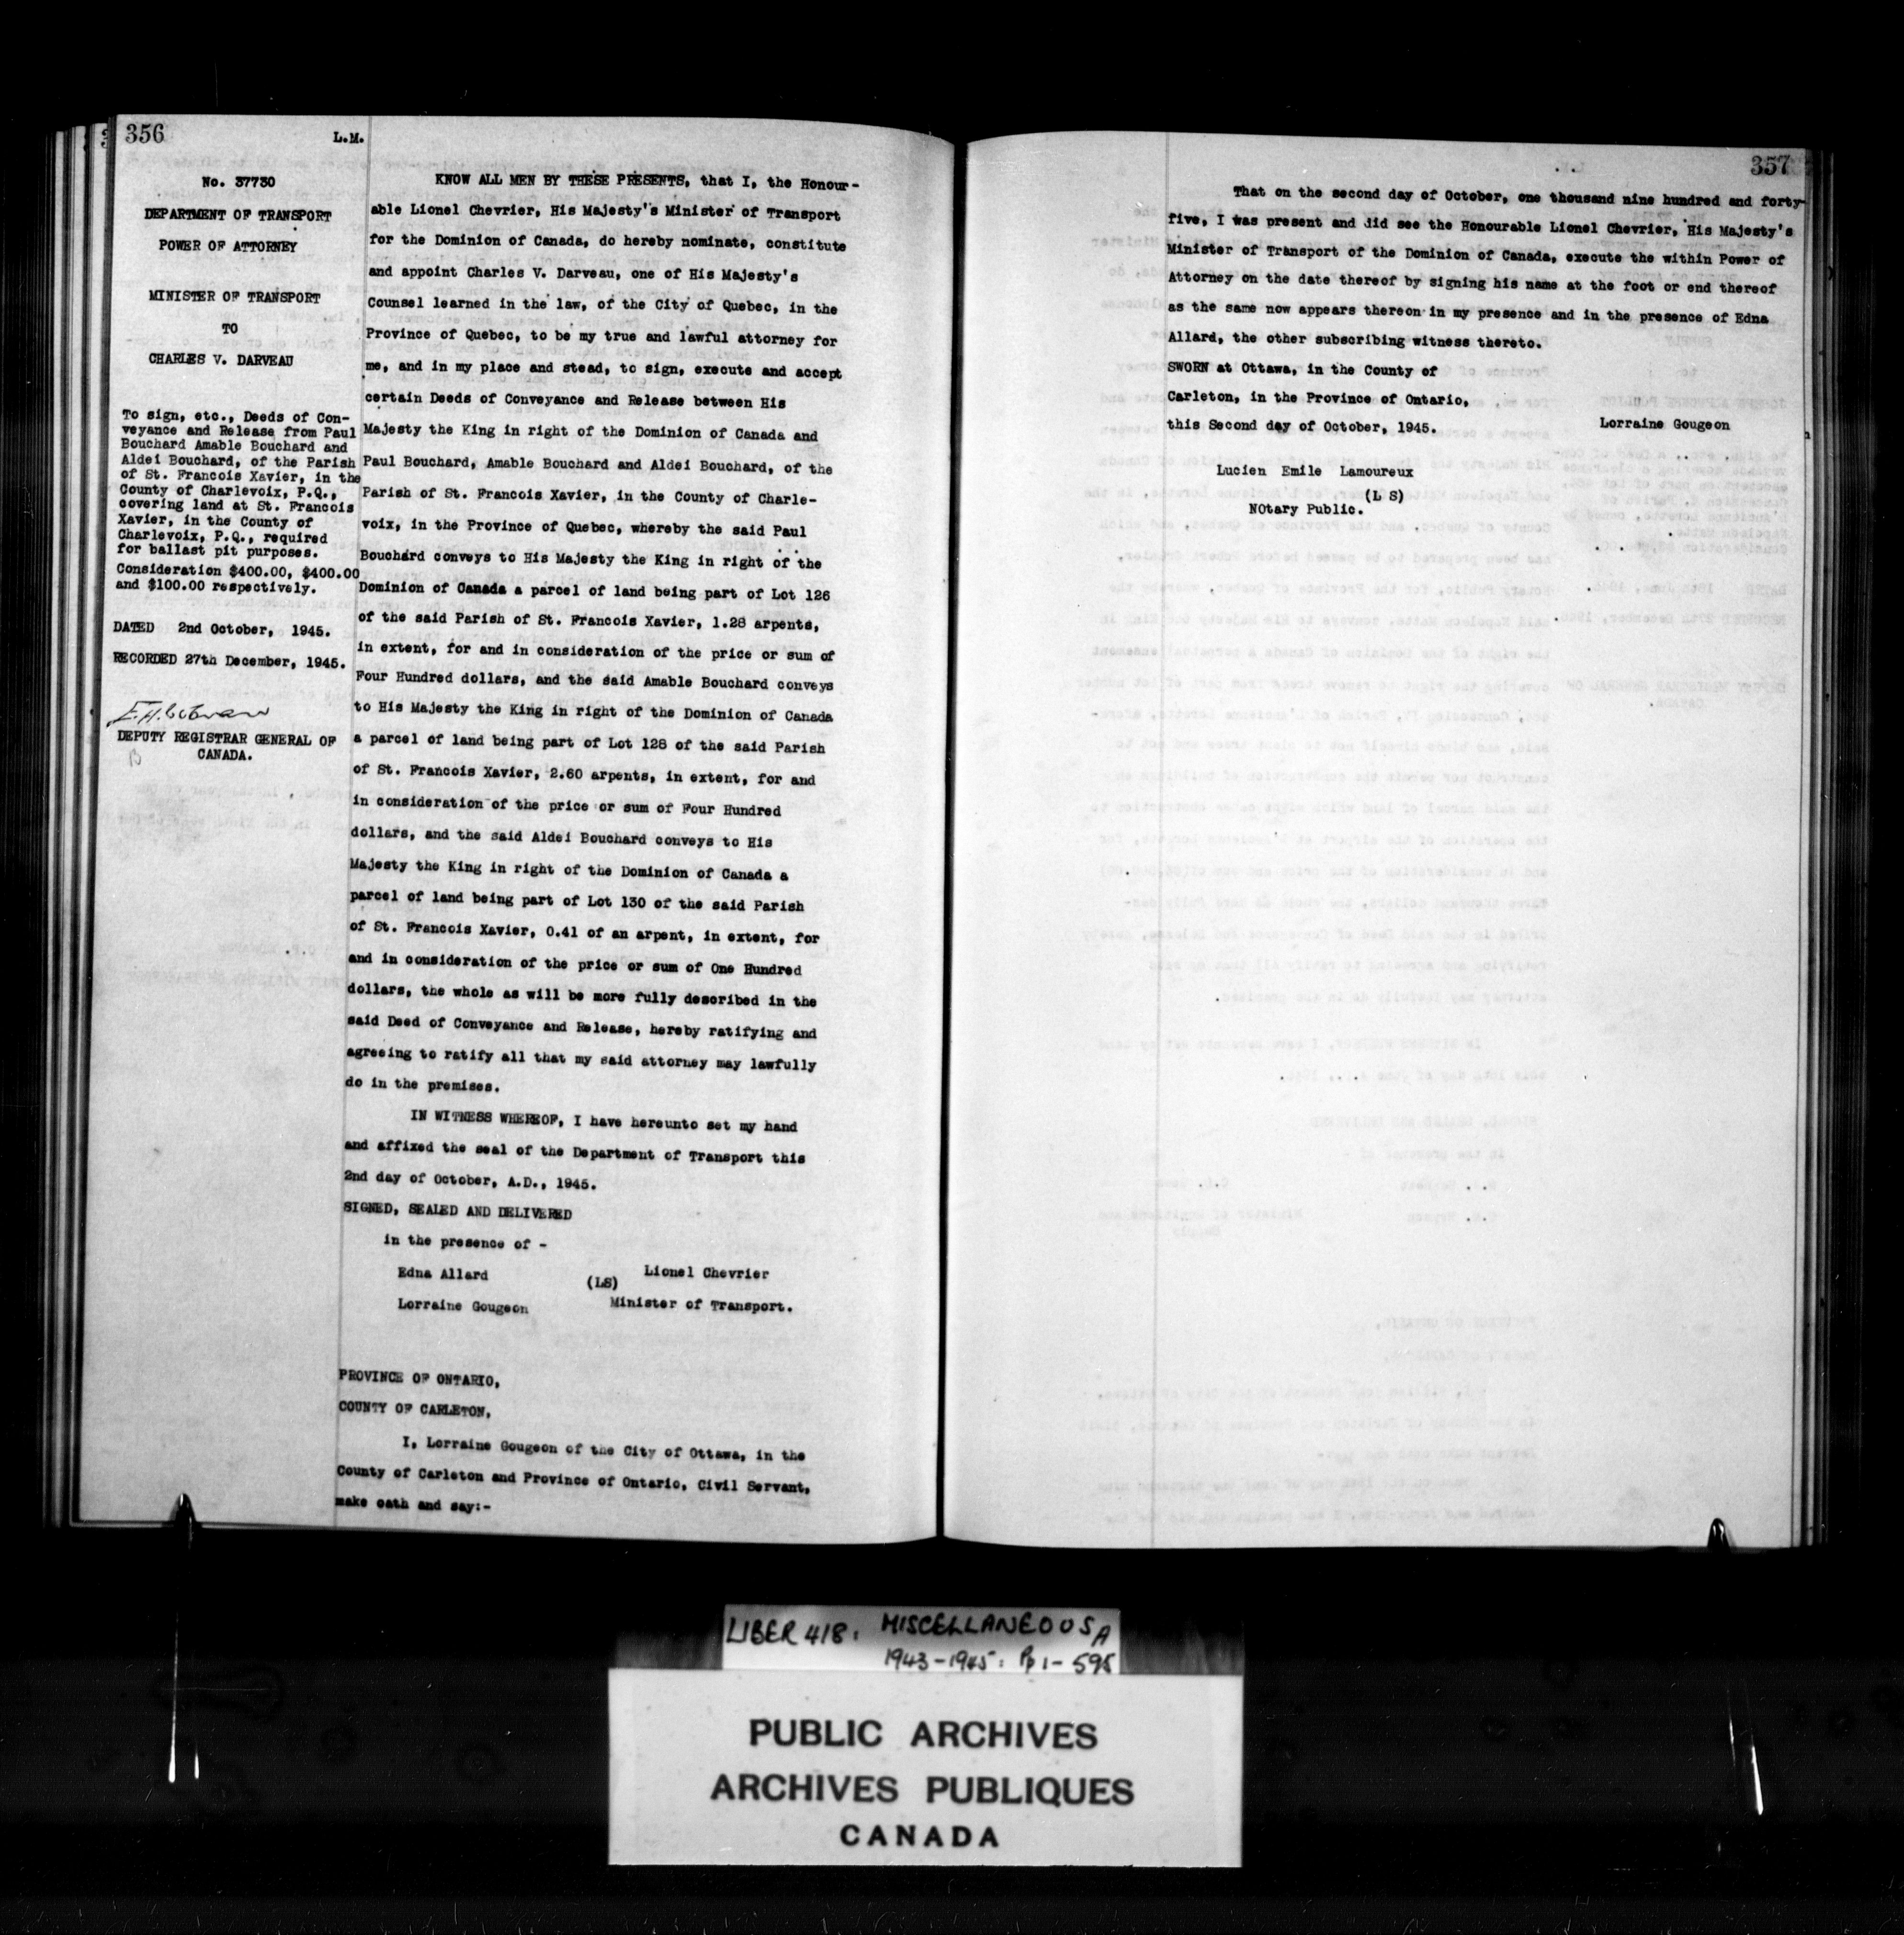 356
L.M.
No. 37730
DEPARTMENT OF TRANSPORT
POWER OF ATTORNEY
MINISTER OF TRANSPORT
TO
CHARLES V. DARVEAU
To sign, etc., Deeds of Con-
veyance and Release from Paul
Bouchard Amable Bouchard and
Aldei Bouchard, of the Parish
of St. Francois Xavier, in the
County of Charlevoix, P.Q.,
covering land at St. Francois
Xavier, in the County of
Charlevoix, P.Q., required
for ballast pit purposes.
Consideration $400.00, $400.00
and $100.00 respectively.
DATED 2nd October, 1945.
RECORDED 27th December, 1945.
DEPUTY REGISTRAR GENERAL OF
CANADA.
KNOW ALL MEN BY THESE PRESENTS, that I, the Honour-
able Lionel Chevrier, His Majesty's Minister of Transport
for the Dominion of Canada, do hereby nominate, constitute
and appoint Charles V. Darveau, one of His Majesty's
Counsel learned in the law, of the City of Quebec, in the
Province of Quebec, to be my true and lawful attorney for
me, and in my place and stead, to sign, execute and accept
certain Deeds of Conveyance and Release between His
Majesty the King in right of the Dominion of Canada and
Paul Bouchard, Amable Bouchard and Aldei Bouchard, of the
Parish of St. Francois Xavier, in the County of Charle-
voix, in the Province of Quebec, whereby the said Paul
Bouchard conveys to His Majesty the King in right of the
Dominion of Canada a parcel of land being part of Lot 126
of the said Parish of St. Francois Xavier, 1.28 arpents,
in extent, for and in consideration of the price or sum of
Four Hundred dollars, and the said Amable Bouchard conveys
to His Majesty the King in right of the Dominion of Canada
a parcel of land being part of Lot 128 of the said Parish
of St. Francois Xavier, 2.60 arpents, in extent, for and
in consideration of the price or sum of Four Hundred
dollars, and the said Aldei Bouchard conveys to His
Majesty the King in right of the Dominion of Canada a
parcel of land being part of Lot 130 of the said Parish
of St. Francois Xavier, 0.41 of an arpent, in extent, for
and in consideration of the price or sum of One Hundred
dollars, the whole as will be more fully described in the
said Deed of Conveyance and Release, hereby ratifying and
agreeing to ratify all that my said attorney may lawfully
do in the premises.
IN WITNESS WHEREOF, I have hereunto set my hand
and affixed the seal of the Department of Transport this
2nd day of October, A.D., 1945.
SIGNED, SEALED AND DELIVERED
in the presence of -
Edna Allard (LS) Lionel Chevrier
Lorraine Gougeon Minister of Transport.
PROVINCE OF ONTARIO,
COUNTY OF CARLETON,
I, Lorraine Gougeon of the City of Ottawa, in the
County of Carleton and Province of Ontario, Civil Servant,
make oath and say:-
357
That on the second day of October, one thousand nine hundred and forty-
five, I was present and did see the Honourable Lionel Chevrier, His Majesty's
Minister of Transport of the Dominion of Canada, execute the within Power of
Attorney on the date thereof by signing his name at the foot or end thereof
as the same now appears thereon in my presence and in the presence of Edna
Allard, the other subscribing witness thereto.
SWORN at Ottawa, in the County of
Carleton, in the Province of Ontario,
this Second day of October, 1945. Lorraine Gougeon
Lucien Emile Lamoureux
(L S)
NOtary Public.
LIBER 418: MISCELLANEOUS A
1943-1945: Pp 1-595
PUBLIC ARCHIVES
ARCHIVES PUBLIQUES
CANADA